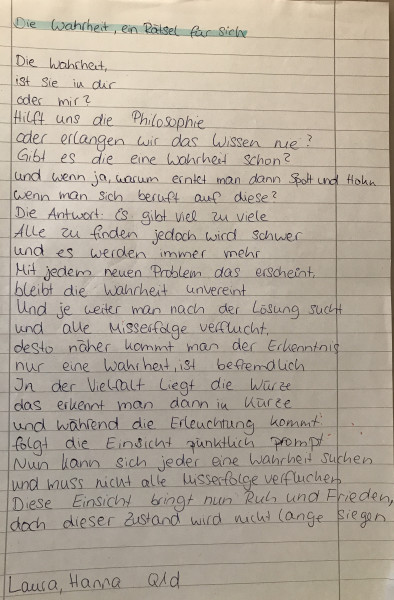 Die Wahrheit, ein Rätsel für sich
Die Wahrheit,
ist sie in dir
oder mir?
Hilft uns die Philosophie
oder erlangen wir das Wissen nie?
Gibt es die eine Wahrheit schon?
und wenn ja, warum erntet man dann Spott und Hohn
wenn man sich beruft auf diese?
Die Antwort: Es gibt viel zu viele
Alle zu finden jedoch wird schwer
und es werden immer mehr
Mit jedem neuen Problem das erscheint,
bleibt die Wahrheit unvereint
Und je weiter man nach der Lösung sucht
und alle Misserfolge verflucht,
desto näher kommt man der Erkenntnis
nur eine Wahrheit, ist befremdlich
In der Vielfalt liegt die Würze
das erkennt man dann in Kürze
und während die Erleuchtung kommt
folgt die Einsicht pünktlich prompt
Nun kann sich jeder eine Wahrheit suchen
und muss nicht alle Misserfolge verfluchen
Diese Einsicht bringt nun Ruh und Frieden,
doch dieser Zustand wird nicht lange siegen
Laura, Hanna Q1d